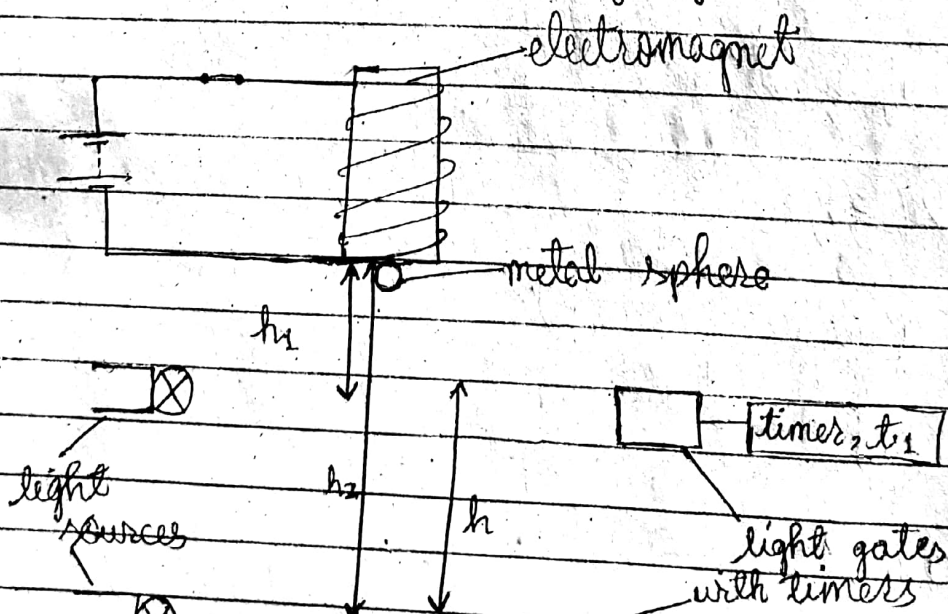 electromagnet
metal sphere
h1
timer, t1
h2
h
light
sources
light gates
with timers